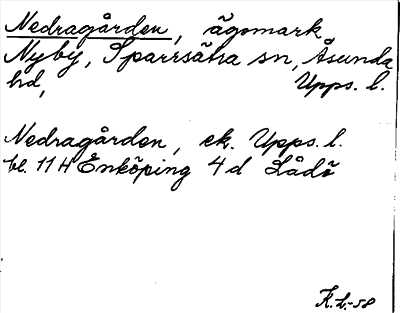 Nedragården, ägomark
Nyby, Sparrsätra sn, Åsunda
hd, Upps. l.
Nedragården, ek. Upps. l.
bl. 11 H Enköping 4 d Lådö
K.L.-58